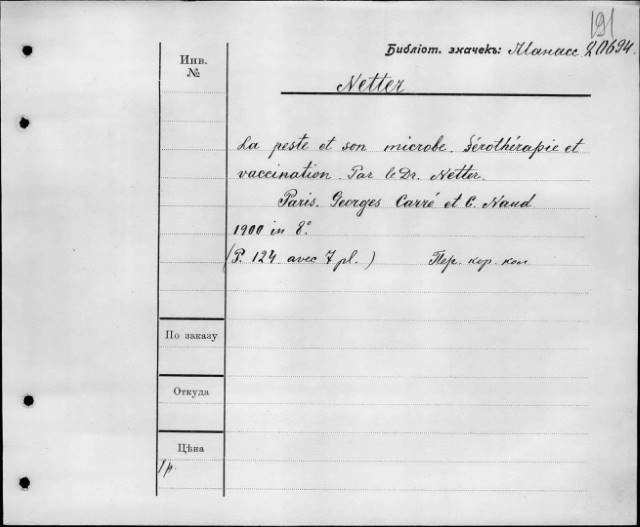 191
Библіот. значекъ: Манасс 20694.
Инв.
№
Netter
La peste et son microbe. Sérothérapie et
vaccination. Par le Dr. Netter.
Paris. Georges Carré et C. Naud
1900 in 8°.
(P. 124 avec 7 pl.) Пер. кор. кол
По заказу
Откуда
Цѣна
1 р.